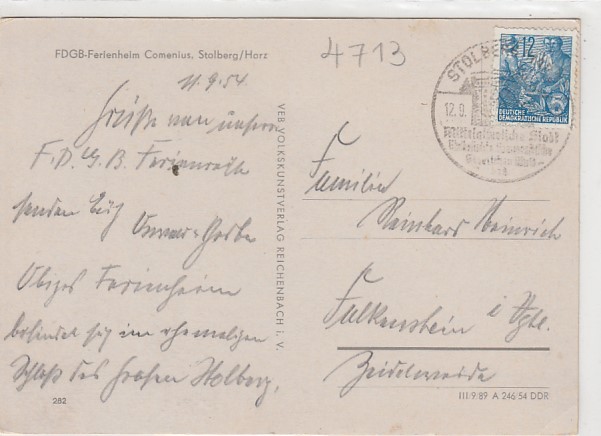 FDGB-Ferienheim Comenius. Stolberg/Harz
4713
11.9.54
Grüße von unserer
F.D.G.B. Ferienreise
senden Euch
Obiges Ferienheim
befindet sich im ehemaligen
Schloß des Grafen Stolberg.
282
VEB VOLKSKUNSTVERLAG REICHENBACH i. V.
STOLBERG
12.9.
Mittelalterliche Stadt
12
6
DEUTSCHE
DEMOKRATISCHE REPUBLIK
Familie
Reinhard Heinrich
Falkenstein i Vgtl.
III-9-89 A 246/54 DDR